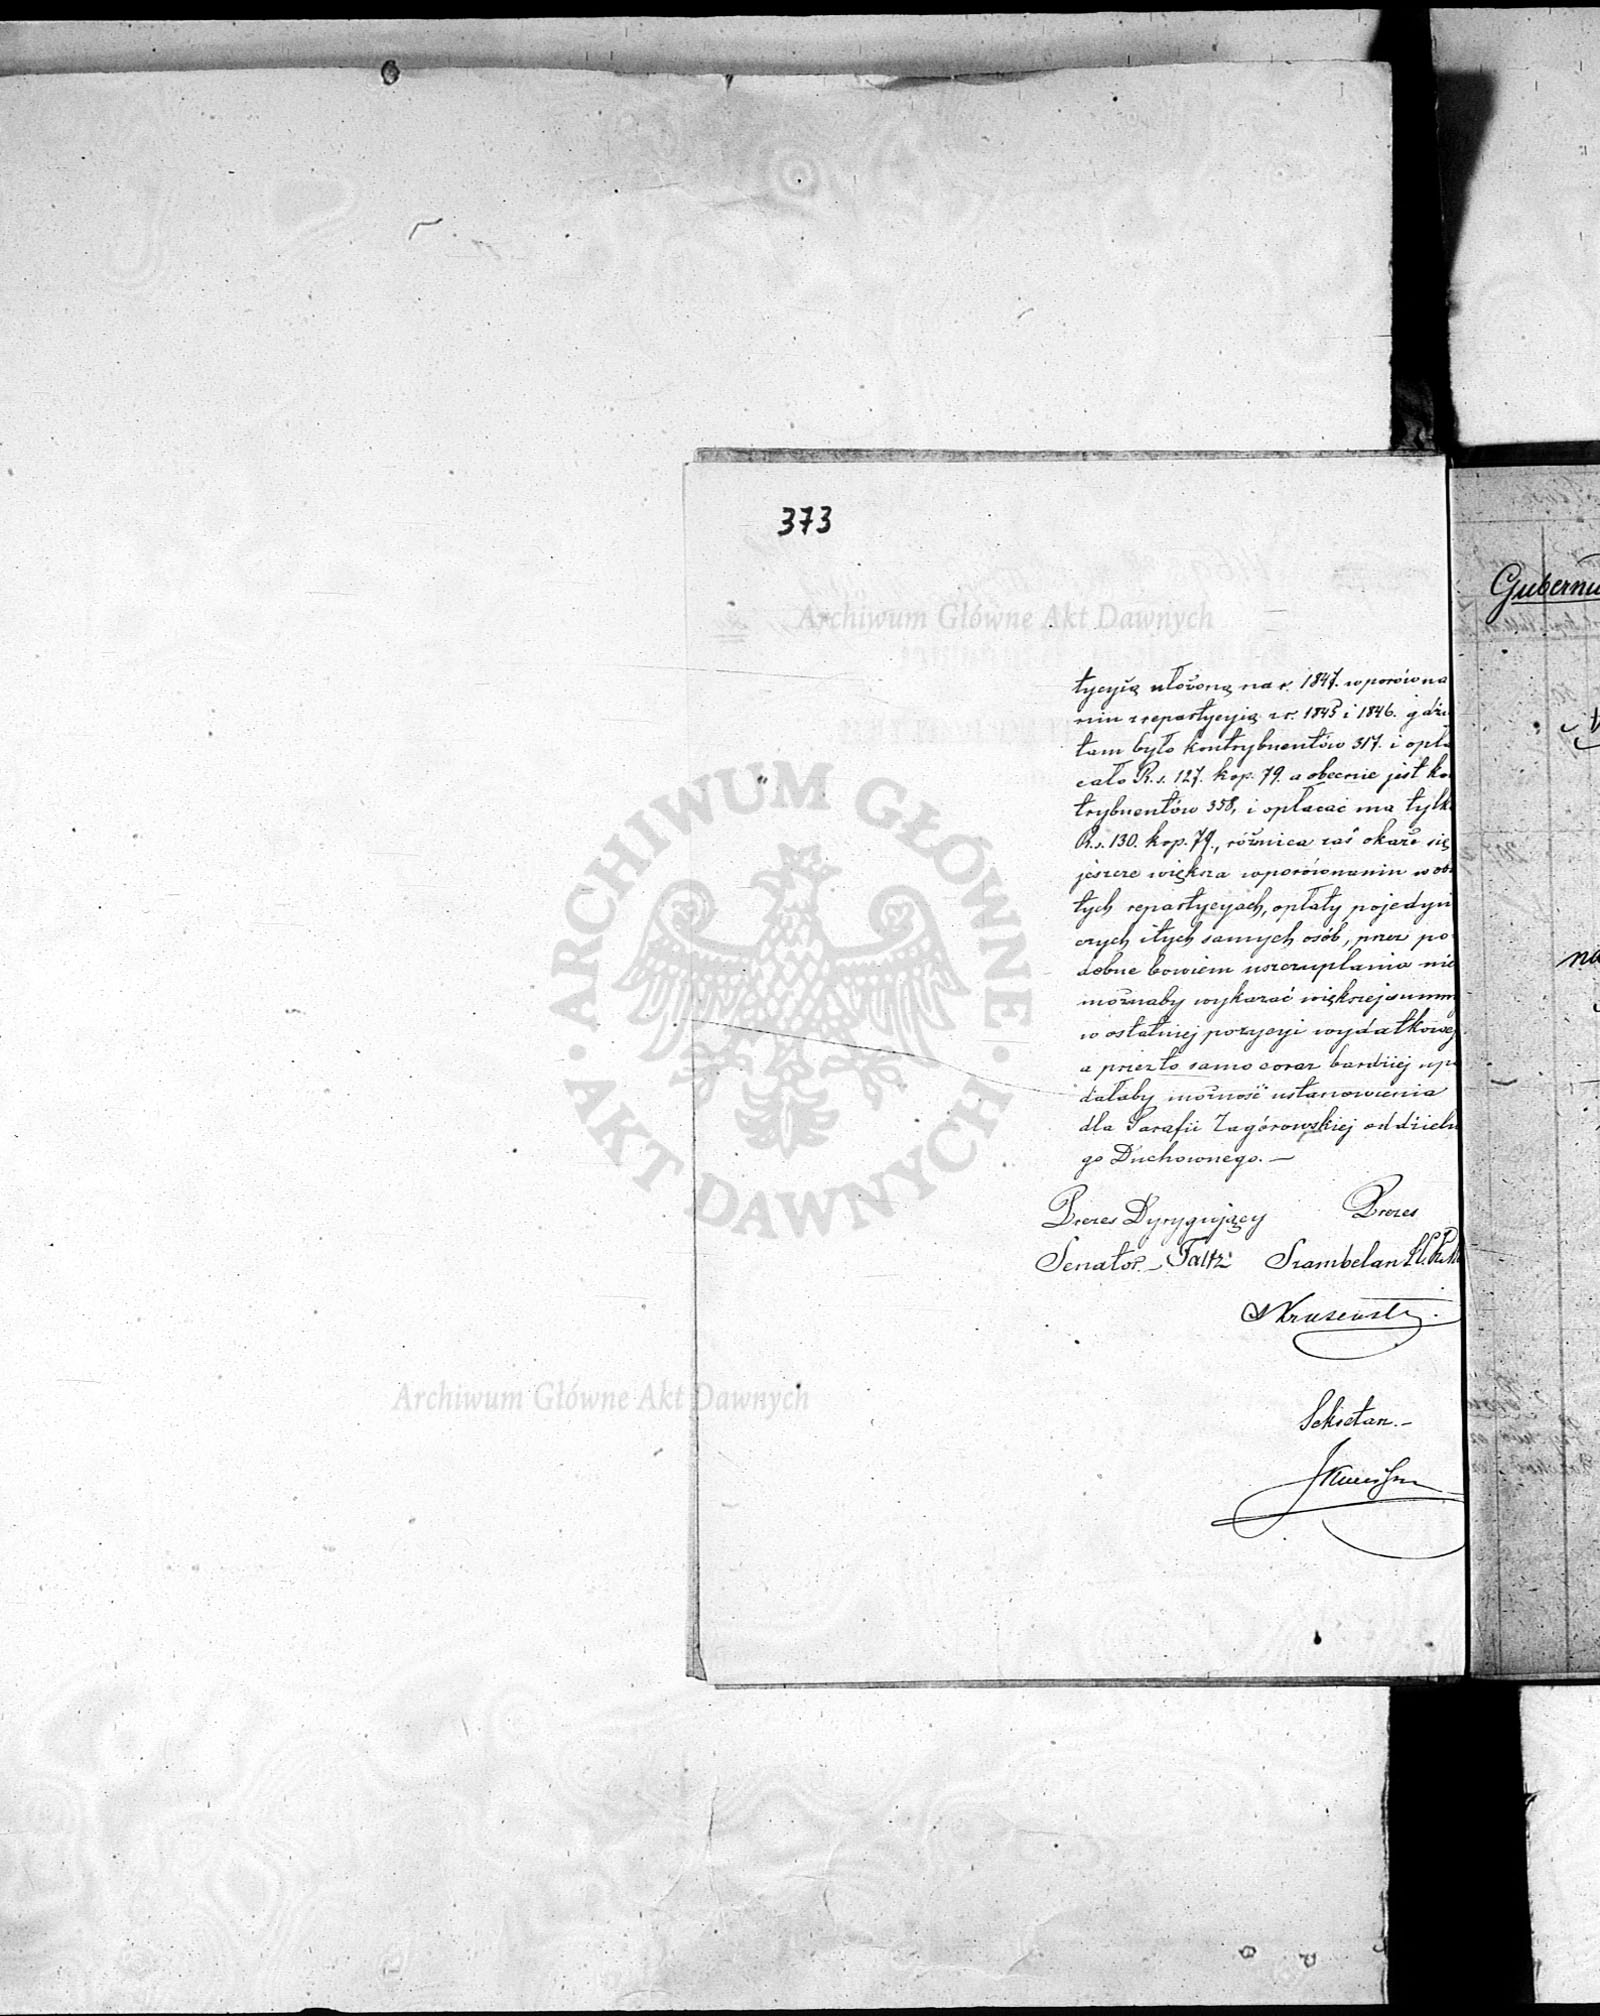 373
Archiwum Główne Akt Dawnych
tycyią ułożoną na r. 1847. w porówna
niu z repartycyią z r. 1845 i 1846. gdzie
tam było kontrybuentów 317. i opła
cało R.s. 127. kop. 79. a obecnie jest ko
trybuentów 358, i opłacać ma tylk
R.s. 130. kop. 79., różnica zaś okaże się
jeszcze większa w porównaniu w ob
tych repartycyach, opłaty pojedyń
czych i tych samych osób, przez po
dobne bowiem uszczuplania nie
możnaby wykazać większej summ
w ostatniej pozycyi wydatkowej
a przez to samo coraz bardziej upa
dałaby możność ustanowienia
dla Parafii Zagórowskiej oddzieln
go Duchownego. —
Prezes Dyrygujący Prezes
Senator — Faltz Szambelan
Kruzenstern
Sekretarz. —
Guberni
na
ARCHIWUM GŁÓWNE AKT DAWNYCH
Archiwum Główne Akt Dawnych